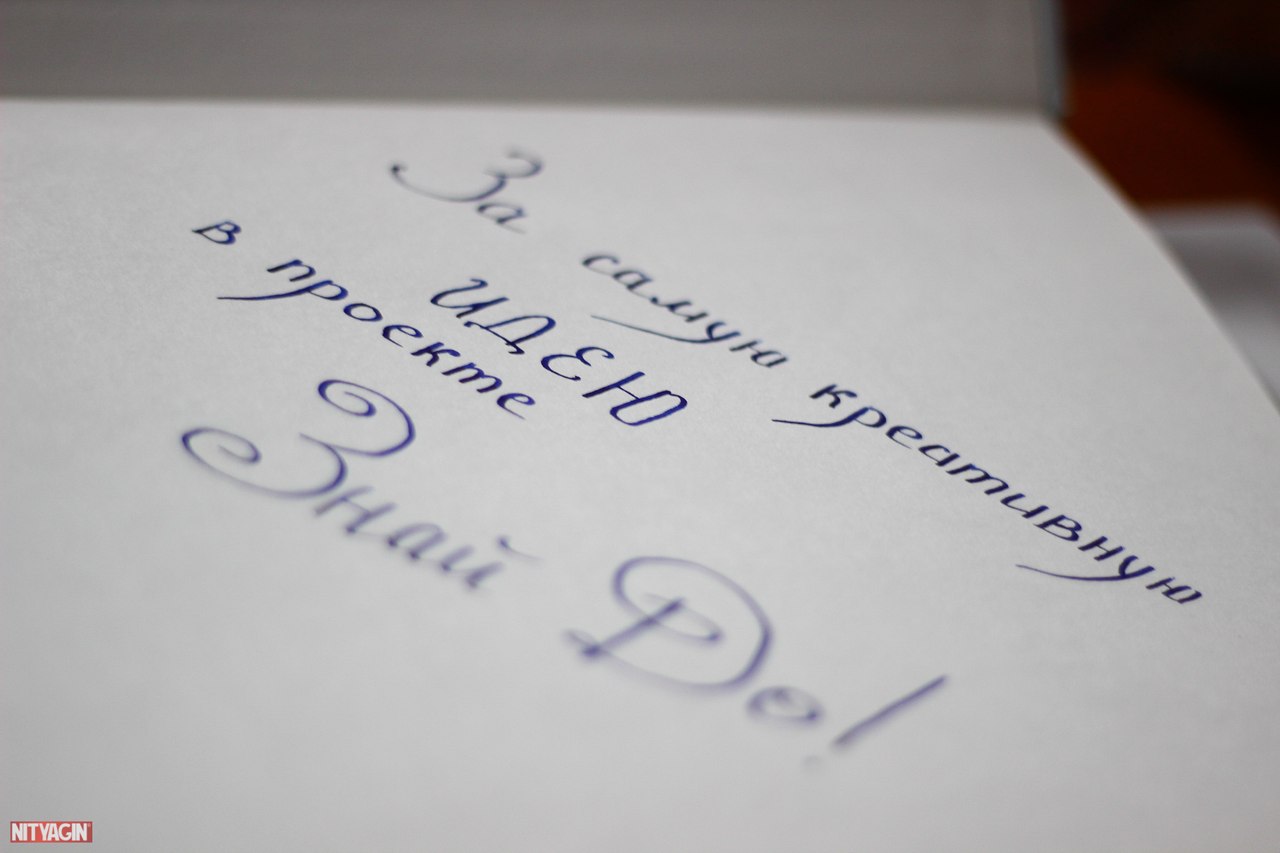 За самую креативную
ИДЕЮ
в проекте
Знай До!
NITYAGIN